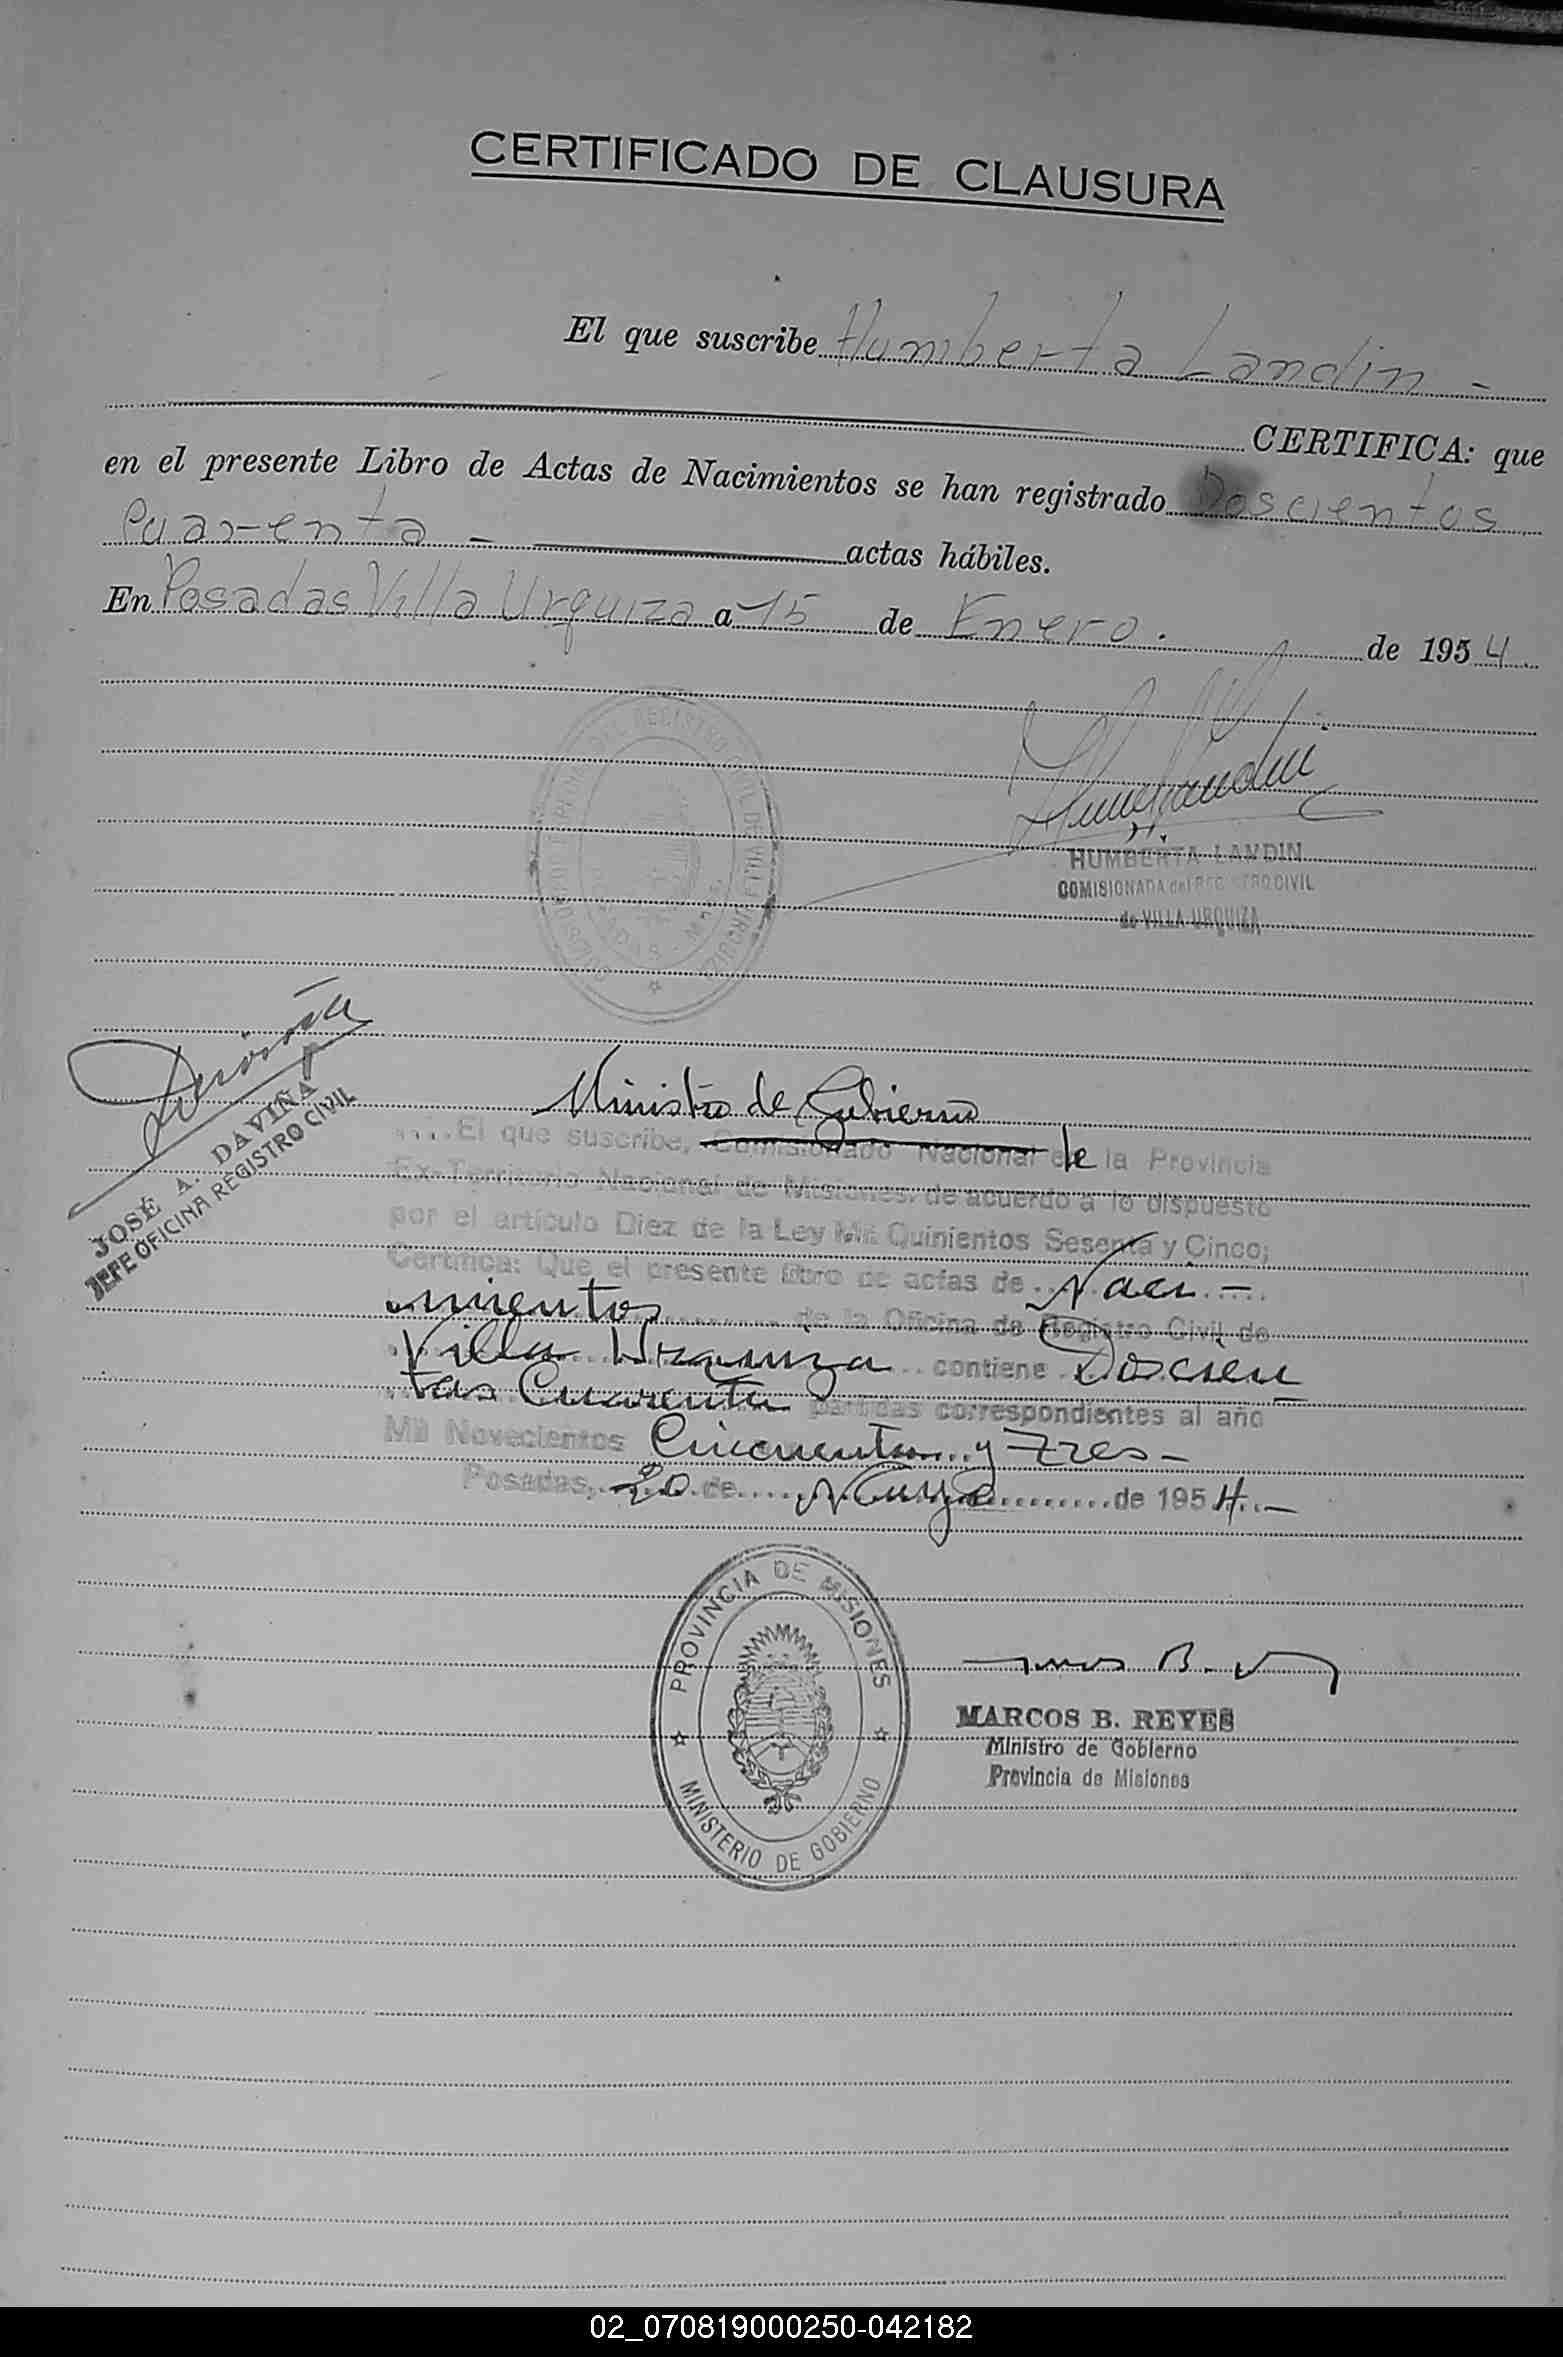 CERTIFICADO DE CLAUSURA
El que suscribe Humberta Landin -
CERTIFICA: que
en el presente Libro de Actas de Nacimientos se han registrado Doscientos
Cuarenta - actas hábiles.
En Posadas Villa Urquiza a 15 de Enero. de 1954.
HUMBERTA LANDIN
COMISIONADA del REGISTRO CIVIL
de VILLA URQUIZA
JOSÉ A. DAVIÑA
JEFE OFICINA REGISTRO CIVIL
Ministro de Gobierno
....El que suscribe, Comisionado Nacional de la Provincia
Ex-Territorio Nacional de Misiones, de acuerdo a lo dispuesto
por el artículo Diez de la Ley Mil Quinientos Sesenta y Cinco;
Certifica: Que el presente libro de actas de Naci-
mientos de la Oficina de Registro Civil de
Villa Urquiza contiene Doscien
tas Cuarenta partidas correspondientes al año
Mil Novecientos Cincuenta y Tres-
Posadas, 20 de Mayo de 1954.-
PROVINCIA DE MISIONES
MINISTERIO DE GOBIERNO
MARCOS B. REYES
Ministro de Gobierno
Provincia de Misiones
02_070819000250-042182